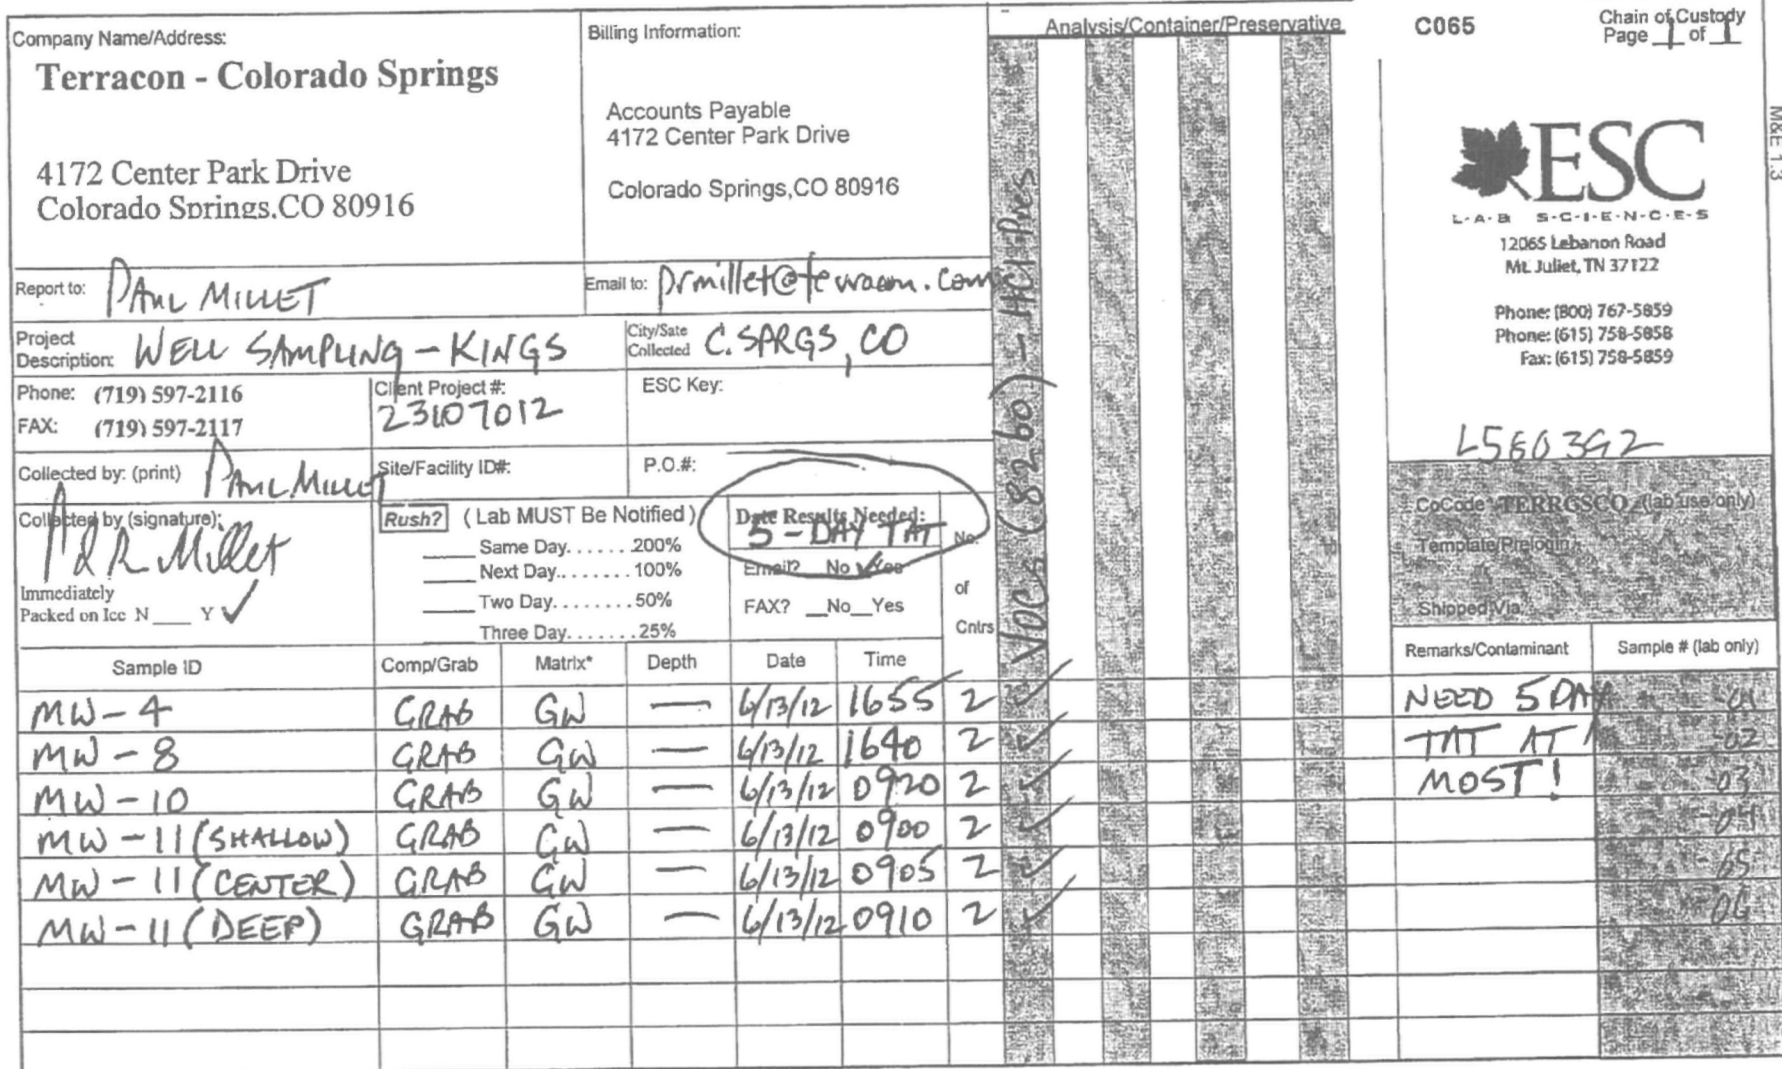 Company Name/Address:
Terracon - Colorado Springs
4172 Center Park Drive
Colorado Springs,CO 80916
Billing Information:
Accounts Payable
4172 Center Park Drive
Colorado Springs,CO 80916
Analysis/Container/Preservative
C065
Chain of Custody
Page 1 of 1
M&E 1.3
ESC
L·A·B S·C·I·E·N·C·E·S
12065 Lebanon Road
Mt. Juliet, TN 37122
Phone: (800) 767-5859
Phone: (615) 758-5858
Fax: (615) 758-5859
Report to: PAUL MILLET
Email to: prmillet@terracon.com
Project Description: WELL SAMPLING - KINGS
City/Sate Collected C. SPRGS, CO
Phone: (719) 597-2116
FAX: (719) 597-2117
Client Project #:
23107012
ESC Key:
L580392
Collected by: (print) PAUL MILLET
Site/Facility ID#:
P.O.#:
Collected by (signature):
P R Millet
Immediately
Packed on Ice N ____ Y ✓
Rush? ( Lab MUST Be Notified )
____ Same Day. . . . . . .200%
____ Next Day.. . . . . . . 100%
____ Two Day. . . . . . . .50%
____ Three Day. . . . . . .25%
Date Results Needed:
5 - DAY TAT
Email? __No ✓Yes
FAX? __No__Yes
No.
of
Cntrs
VOCs (8260) - HCl Pres
CoCode TERRGSCO (lab use only)
Template/Prelogin
Shipped Via:
Sample ID Comp/Grab Matrix* Depth Date Time Remarks/Contaminant Sample # (lab only)
MW - 4 GRAB GW — 6/13/12 1655 2 ✓ NEED 5 DAY -01
MW - 8 GRAB GW — 6/13/12 1640 2 ✓ TAT AT -02
MW - 10 GRAB GW — 6/13/12 0920 2 ✓ MOST! -03
MW - 11 (SHALLOW) GRAB GW — 6/13/12 0900 2 ✓ -04
MW - 11 (CENTER) GRAB GW — 6/13/12 0905 2 ✓ -05
MW - 11 (DEEP) GRAB GW — 6/13/12 0910 2 ✓ -06